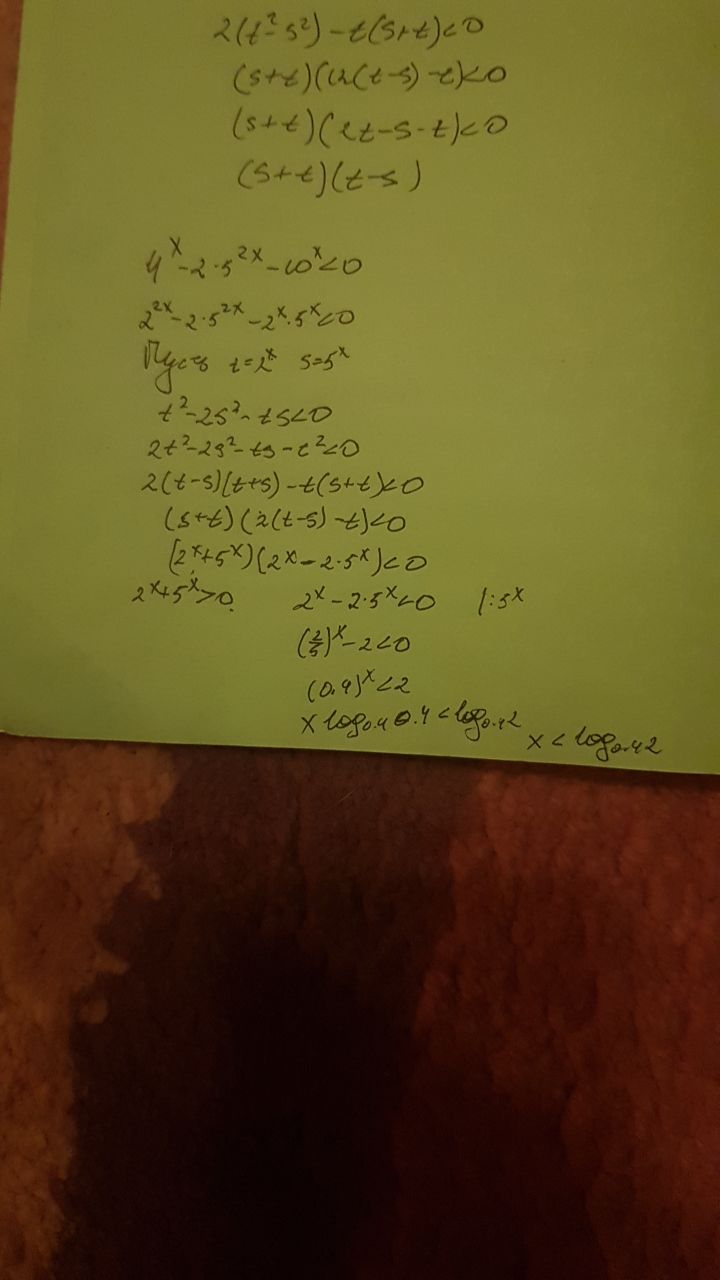 2(t²-s²)-t(s+t)<0
(s+t)(2(t-s)-t)<0
(s+t)(2t-s-t)<0
(s+t)(t-s)
4ˣ-2·5²ˣ-10ˣ<0
2²ˣ-2·5²ˣ-2ˣ·5ˣ<0
Пусть t=2ˣ s=5ˣ
t²-2s²-ts<0
2t²-2s²-ts-t²<0
2(t-s)(t+s)-t(s+t)<0
(s+t)(2(t-s)-t)<0
(2ˣ+5ˣ)(2ˣ-2·5ˣ)<0
2ˣ+5ˣ>0. 2ˣ-2·5ˣ<0 |:5ˣ
(2/5)ˣ-2<0
(0.4)ˣ<2
x log₀.₄0.4<log₀.₄2
x<log₀.₄2